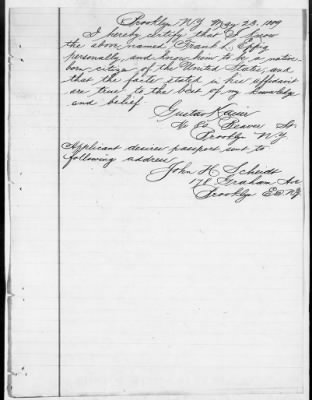 Brooklyn N.Y. May 23. 1889
I hereby certify that I know
the above named Frank L. Epping
personally, and know him to be a native
born citizen of the United States, and
that the facts stated in his affidavit
are true to the best of my knowledge
and belief
Gustav Kaiser
Beaver St.
Brooklyn N.Y.
Applicant desires passport sent to
following address
John H Scheidt
178 Graham Av
Brooklyn E.D. N.Y.